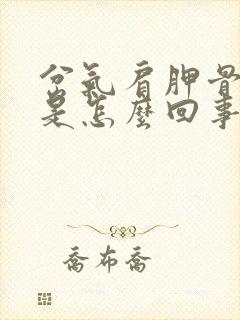 岔氣肩胛骨
是怎麼回事
喬布喬